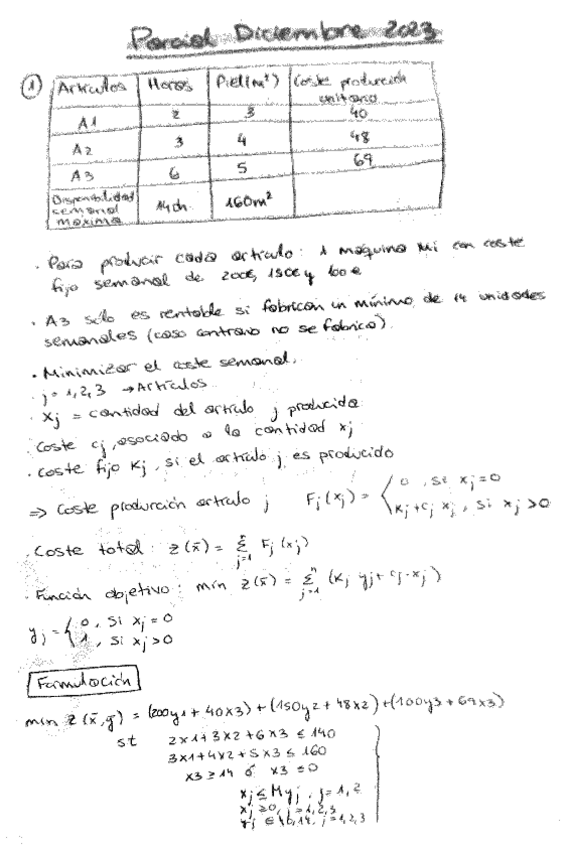 Parcial Diciembre 2023
① Artículos | Horas | Piel (m²) | Coste producción unitario
A1 | 2 | 3 | 40
A2 | 3 | 4 | 48
A3 | 6 | 5 | 69
Disponibilidad semanal máxima | 140h | 160m²
· Para producir cada artículo: 1 máquina Mi con coste
fijo semanal de 200€, 150€ y 100€
· A3 sólo es rentable si fabrican un mínimo de 14 unidades
semanales (caso contrario no se fabrica).
· Minimizar el coste semanal.
· j = 1,2,3 → Artículos
· Xj = cantidad del artículo j producida
· Coste cj, asociado a la cantidad xj
· Coste fijo Kj, si el artículo j es producido
⇒ Coste producción artículo j Fj(xj) = { 0, si xj = 0
Kj + cj xj, si xj > 0
· Coste total: z(x̄) = Σ Fj(xj)
j=1
· Función objetivo: min z(x̄) = Σ (Kj yj + cj·xj)
j=1
yj = { 0, si xj = 0
1, si xj > 0
Formulación
min z(x̄,ȳ) = (200y1 + 40x3) + (150y2 + 48x2) + (100y3 + 69x3)
st 2x1 + 3x2 + 6x3 ≤ 140
3x1 + 4x2 + 5x3 ≤ 160
x3 ≥ 14 ó x3 ≤ 0
xj ≤ Myj, j = 1,2
xj ≥ 0, j = 1,2,3
yj ∈ {0,1}, j = 1,2,3